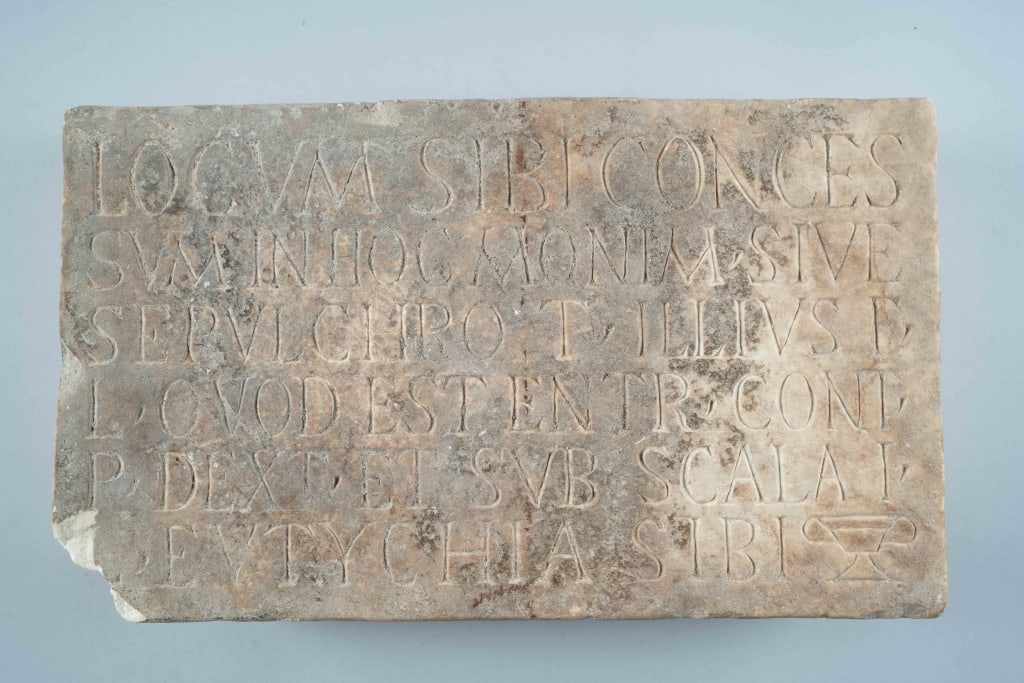 LOCVM SIBI CONCES
SVM IN HOC MONIM, SIVE
SEPVLCHRO T, ILLIVS F,
L, QVOD EST ENTR, CONT,
P, DEXT, ET SVB SCALA I,
EVTYCHIA SIBI